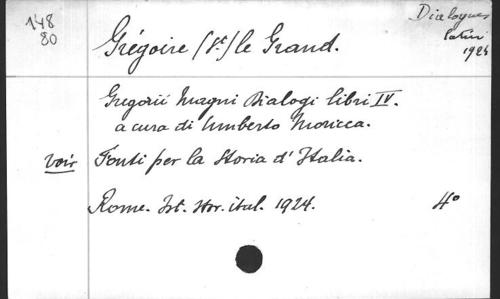 148
80
Dialogues
latin
1924
Grégoire (St) le Grand.
Gregorii Magni Dialogi libri IV.
a cura di Umberto Moricca.
voir Fonti per la Storia d'Italia.
Rome. Ist. Stor. ital. 1924. 4°